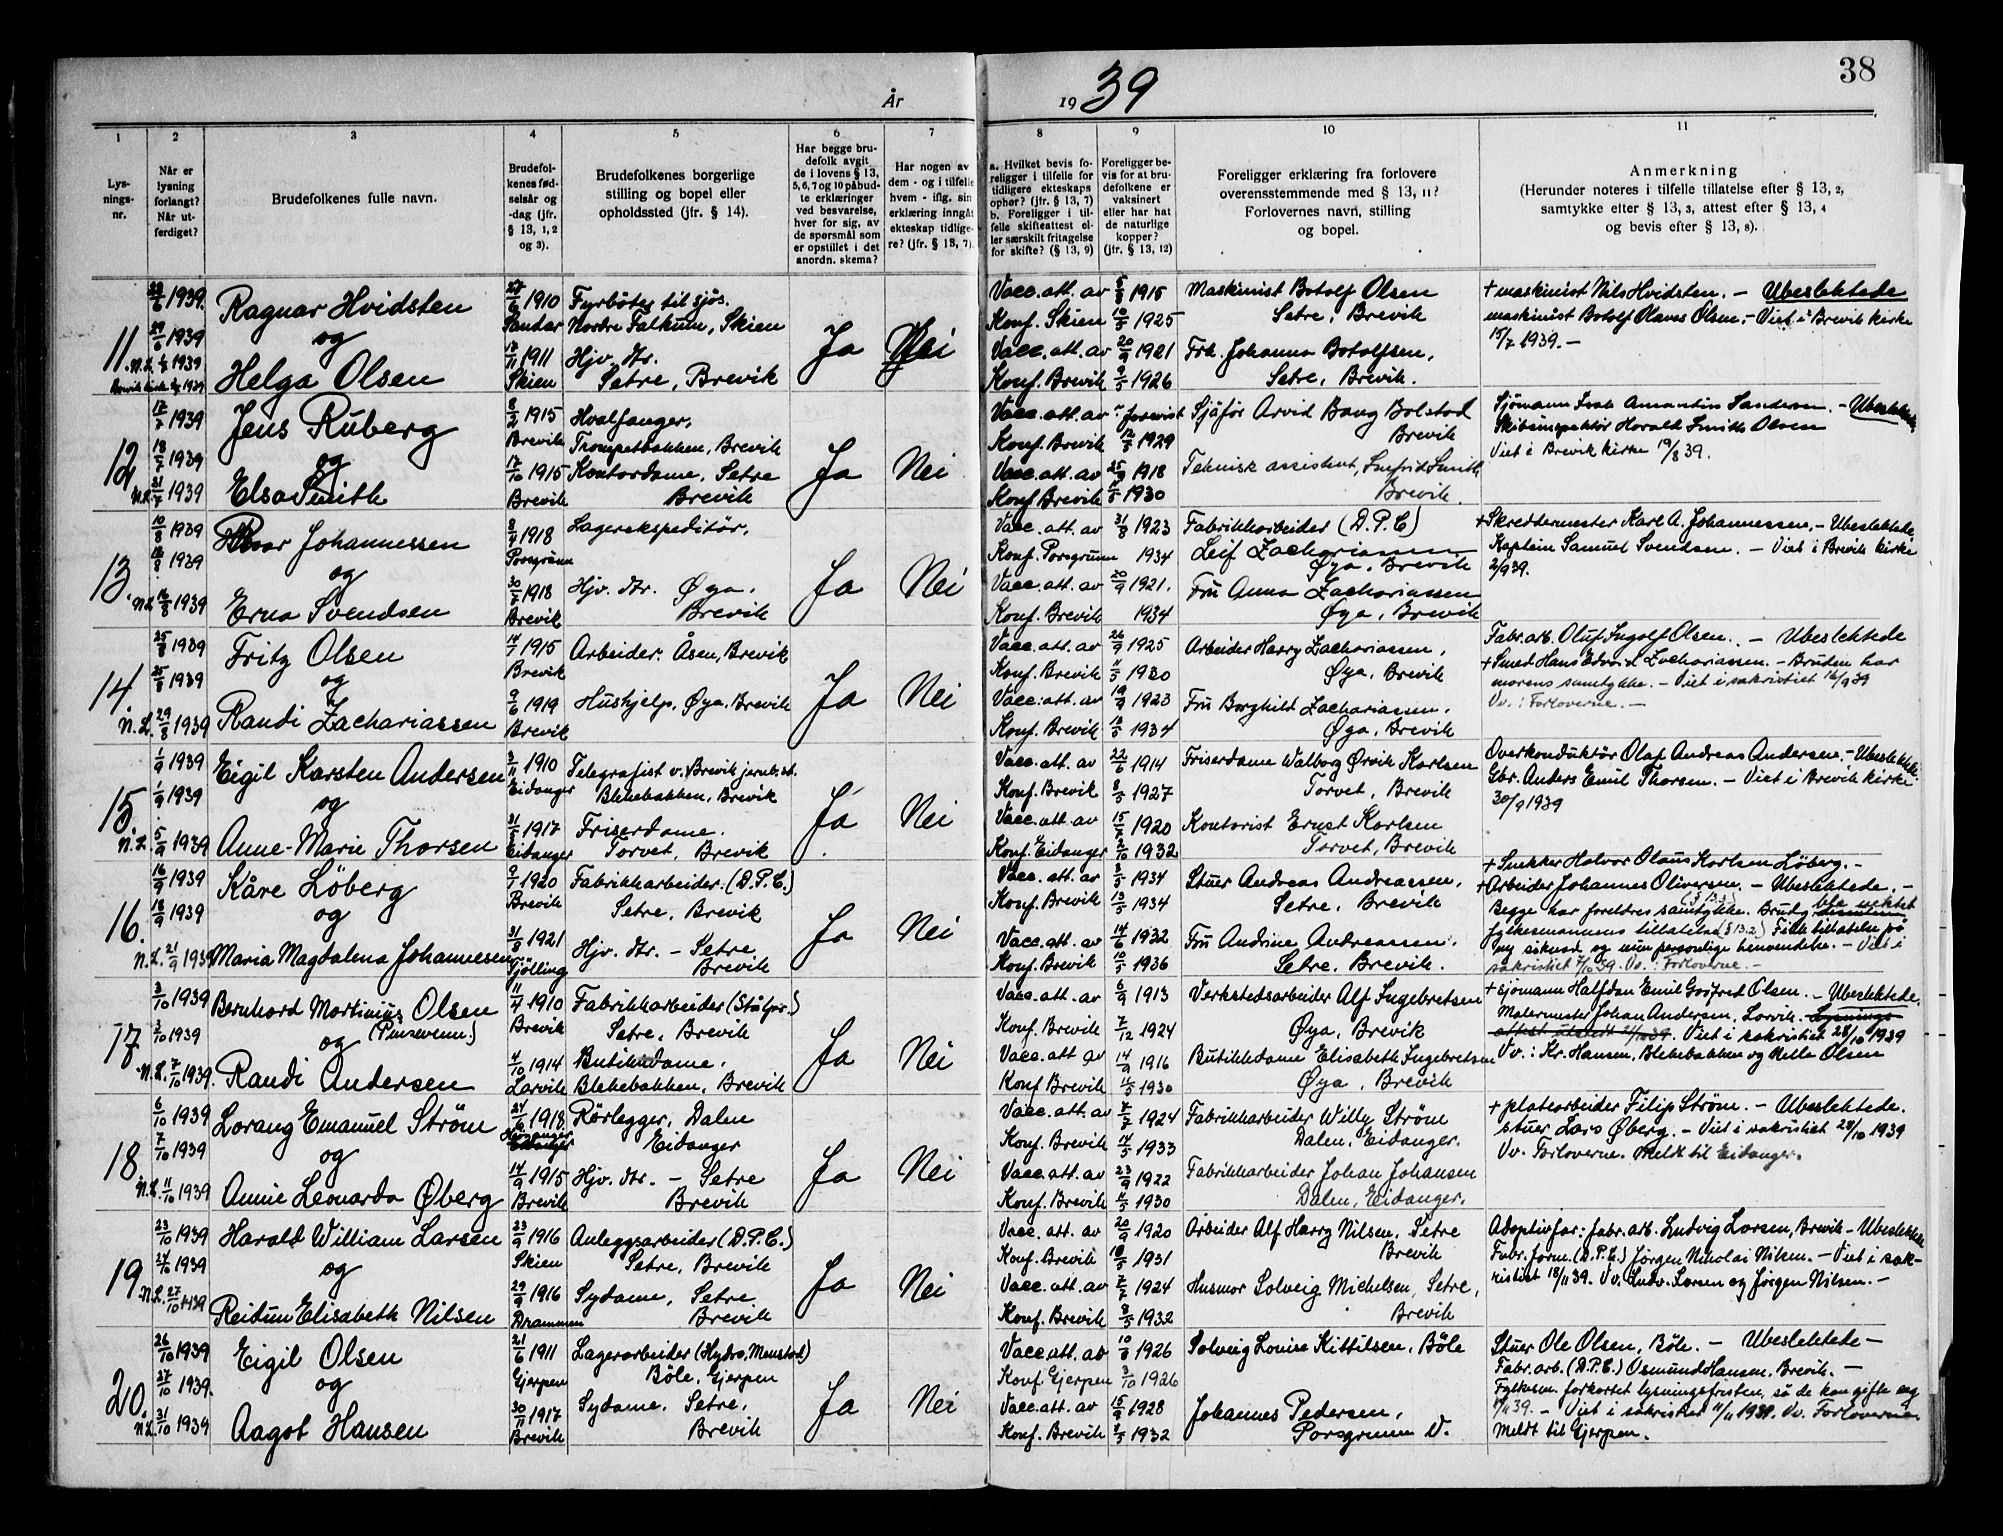 38
År
19 39
1
2
3
4
5
6
7
8
9
10
11
Lys-
nings-
nr.
Når er
lysning
forlangt?
Når ut-
ferdiget?
Brudefolkenes fulle navn.
Brudefol-
kenes fød-
selsår og
-dag (jfr.
§ 13, 1, 2
og 3).
Brudefolkenes borgerlige
stilling og bopel eller
opholdssted (jfr. § 14).
Har begge bru-
defolk avgit
de i lovens § 13,
5, 6, 7 og 10 påbud-
te erklæringer
ved besvarelse,
hver for sig, av
de spørsmål som
er opstillet i det
anordn. skema?
Har nogen av
dem - og i tilfelle
hvem - iflg. sin
erklæring inngått
ekteskap tidlige-
re? (jfr. § 13, 7).
a. Hvilket bevis fo-
religger i tilfelle for
tidligere ekteskaps
ophør? (jfr. § 13, 7)
b. Foreligger i til-
felle skifteattest el-
ler særskilt fritagelse
for skifte? (§ 13, 9)
Foreligger be-
vis for at bru-
defolkene er
vaksinert
eller har hat
de naturlige
kopper?
(jfr. § 13, 12)
Foreligger erklæring fra forlovere
overensstemmende med § 13, 11?
Forlovernes navn, stilling
og bopel.
Anmerkning
(Herunder noteres i tilfelle tillatelse efter § 13, 2,
samtykke efter § 13, 3, attest efter § 13, 4
og bevis efter § 13, 8).
11.
29/6 1939.
29/6 1939
N.L. 1939
Ragnar Hvidsten
og
Helga Olsen
27/6 1910
Sandar
17/11 1911
Skien
Fyrbøter til sjøs.
Nordre Falkum, Skien
Hjv. dtr.
Setre, Brevik
Ja
Nei
Vacc. att. av 1915
Konf. Skien 10/5 1925
Vacc. att. av 20/9 1921
Konf. Brevik 9/5 1926
Maskinist Botolf Olsen
Setre, Brevik
Frk. Johanna Botolfsen,
Setre, Brevik.
+ maskinist Nils Hvidsten. - Ubeslektede
maskinist Botolf Olaves Olsen. - Viet i Brevik kirke
15/7 1939. -
12.
17/7 1939
18/7 1939
N.L. 31/7 1939
Jens Ruberg
og
Elsa Smith
8/2 1915
Brevik
17/10 1915
Brevik
Hvalfanger,
Trompetbakken, Brevik
Kontordame, Setre
Brevik
Ja
Nei
Vacc. att. av
Konf. Brevik 12/5 1929
Vacc. att. av 25/9 1918
Konf. Brevik 11/5 1930
Sjåfør Arvid Bang Bolstad
Brevik
Teknisk assistent, Smith
Brevik.
Sjømann Isak Amantin Sandersen. - Ubeslektede
Skibsinspektør Harald Smith Olsen
Viet i Brevik kirke 19/8 39.
13.
10/8 1939
16/8 1939
N.L. 16/8 1939
Johannessen
og
Erna Svendsen
8/4 1918
Porsgrunn
30/7 1918
Brevik
Lagerekspeditør.
Hjv. dtr. Øya.
Brevik
Ja
Nei
Vacc. att. av 31/8 1923
Konf. Porsgrunn 1934
Vacc. att. av 20/9 1921.
Konf. Brevik 1934
Fabrikkarbeider (D.P.C)
Leif Zachariassen
Øya, Brevik
Fru Anna Zachariassen
Øya, Brevik
+ Skreddermester Karl A. Johannessen. - Ubeslektede
Kaptein Samuel Svendsen. - Viet i Brevik kirke
2/9 39.
14.
25/8 1939
25/8 1939
N.L. 29/8 1939
Fritz Olsen
og
Randi Zachariassen
14/7 1915
Brevik
9/6 1919
Brevik
Arbeider. Åsen, Brevik
Hushjelp, Øya, Brevik
Ja
Nei
Vacc. att. av 26/9 1925
Konf. Brevik 11/5 1930
Vacc. att. av 19/9 1923
Konf. Brevik 13/5 1934
Arbeider Harry Zachariassen,
Øya, Brevik
Fru Borghild Zachariassen.
Øya, Brevik
Fabr. arb. Oluf Ingolf Olsen. - Ubeslektede
+ Smed Hans Edvard Zachariassen. - Bruden har
morens samtykke. - Viet i sakristiet 16/9 39
Vv.: Forloverne. -
15.
1/9 1939
1/9 1939
N.L. 5/9 1939
Eigil Karsten Andersen
og
Anne-Marie Thorsen
3/11 1910
Eidanger
31/8 1917
Eidanger
Telegrafist v. Brevik jernb.st.
Blekebakken, Brevik
Friserdame.
Torvet, Brevik
Ja
Nei
Vacc. att. av 22/6 1914
Konf. Brevik 8/5 1927
Vacc. att. av 1920
Konf. Eidanger 2/10 1932
Friserdame Walborg Ørvik Karlsen
Torvet, Brevik
Kontorist Ernst Karlsen
Torvet, Brevik
Overkonduktør Olaf Andreas Andersen. - Ubeslektede.
Gbr. Anders Emil Thorsen. - Viet i Brevik kirke
30/9 1939
16.
16/9 1939
18/9 1939
N.L. 21/9 1939
Kåre Løberg
og
Maria Magdalena Johannesen
9/7 1920
Brevik
31/8 1921
Tjølling
Fabrikkarbeider. (D.P.C.)
Setre, Brevik
Hjv. dtr. - Setre
Brevik
Ja
Nei
Vacc. att. av 1934
Konf. Brevik 13/5 1934
Vacc. att. av 14/6 1932
Konf. Brevik 10/5 1936
Stuer Andreas Andreassen,
Setre, Brevik
Fru Andrine Andreassen.
Setre, Brevik.
+ Snekker Halvor Olaus Karlsen Løberg. -
+ Arbeider Johannes Oliversen. - Ubeslektede. -
Begge har foreldres samtykke. Brudg. ble nektet
fylkesmannens tillatelse (§ 13.2) Fikk tillatelse på
ny søknad og min personlige henvendelse. - Viet i
sakristiet 7/10 39. Vv.: Forloverne. -
17.
3/10 1939
3/10 1939
N.L. 7/10 1939.
Bernhard Martinius Olsen
(Pinsevenn)
og
Randi Andersen
11/9 1910
Brevik
4/10 1914
Larvik
Fabrikkarbeider (Stålpr.)
Setre, Brevik
Butikkdame.
Blekebakken, Brevik
Ja
Nei
Vacc. att. av 6/9 1913
Konf. Brevik 7/12 1924
Vacc. att av 14/9 1916
Konf. Brevik 11/5 1930
Verkstedsarbeider Alf Ingebretsen
Øya, Brevik
Butikkdame Elisabeth Ingebretsen
Øya, Brevik
+ sjømann Halfdan Emil Godfred Olsen. - Ubeslektede.
Malermester Johan Andersen, Larvik. Lysnings-
attest utstedt 21/10 39. Viet i sakristiet 28/10 1939
Vv.: Kr. Hansen, Blekebakken og Kelle Olsen
18.
6/10 1939
7/10 1939
N.L. 11/10 1939
Lorang Emanuel Strøm
og
Annie Leonarda Øberg
24/6 1918.
Eidanger
14/9 1915
Brevik
Rørlegger, Dalen
Eidanger
Hjv. dtr. - Setre
Brevik
Ja
Nei
Vacc. att. av 7/7 1924
Konf. Brevik 14/5 1933
Vacc. att. av 23/9 1922
Konf. Brevik 11/5 1930
Fabrikkarbeider Willy Strøm
Dalen, Eidanger.
Fabrikkarbeider Johan Johansen
Dalen, Eidanger.
+ platearbeider Filip Strøm. - Ubeslektede.
Stuer Lars Øberg. - Viet i sakristiet 28/10 1939
Vv. Forloverne. Meldt til Eidanger.
19.
23/10 1939
24/10 1939
N.L. 27/10 1939
Harald William Larsen
og
Reidun Elisabeth Nilsen
23/9 1916
Skien
29/9 1916
Drammen
Anleggsarbeider (D.P.C.)
Setre, Brevik
Sydame, Setre
Brevik
Ja
Nei
Vacc. att. av 20/9 1920
Konf. Brevik 10/5 1931
Vacc. att. av 7/7 1924
Konf. Brevik 8/5 1932
Arbeider Alf Harry Nilsen, Setre
Brevik
Husmor Solveig Michelsen, Setre,
Brevik
Adoptivfar: fabr. arb. Ludvig Larsen, Brevik - Ubeslektede
Fabr. form. (D.P.C.) Jørgen Nikolai Nilsen. - Viet i sak-
ristiet 18/11 39. Vv. Ludv. Larsen og Jørgen Nilsen. -
20.
26/10 1939
27/10 1939.
N.L. 31/10 1939
Eigil Olsen
og
Aagot Hansen
21/6 1911
Gjerpen
30/11 1917
Brevik
Lagerarbeider (Hydro, Menstad)
Bøle, Gjerpen
Sydame, Setre,
Brevik
Ja
Nei
Vacc. att. av 1926
Konf. Gjerpen 3/10 1926
Vacc. att. av 15/9 1928
Konf. Brevik 8/5 1932
Solveig Louise Kittilsen, Bøle
Johannes Pedersen,
Porsgrunn V.
Stuer Ole Olsen, Bøle. - Ubeslektede -
Fabr. arb. (D.P.C.) Osmund Hansen, Brevik. -
Fylkesm. forkortet lysningsfristen, så de kan gifte seg
11/11 39. - Viet i sakristiet 11/11 1939. Vv. Forloverne
Meldt til Gjerpen.